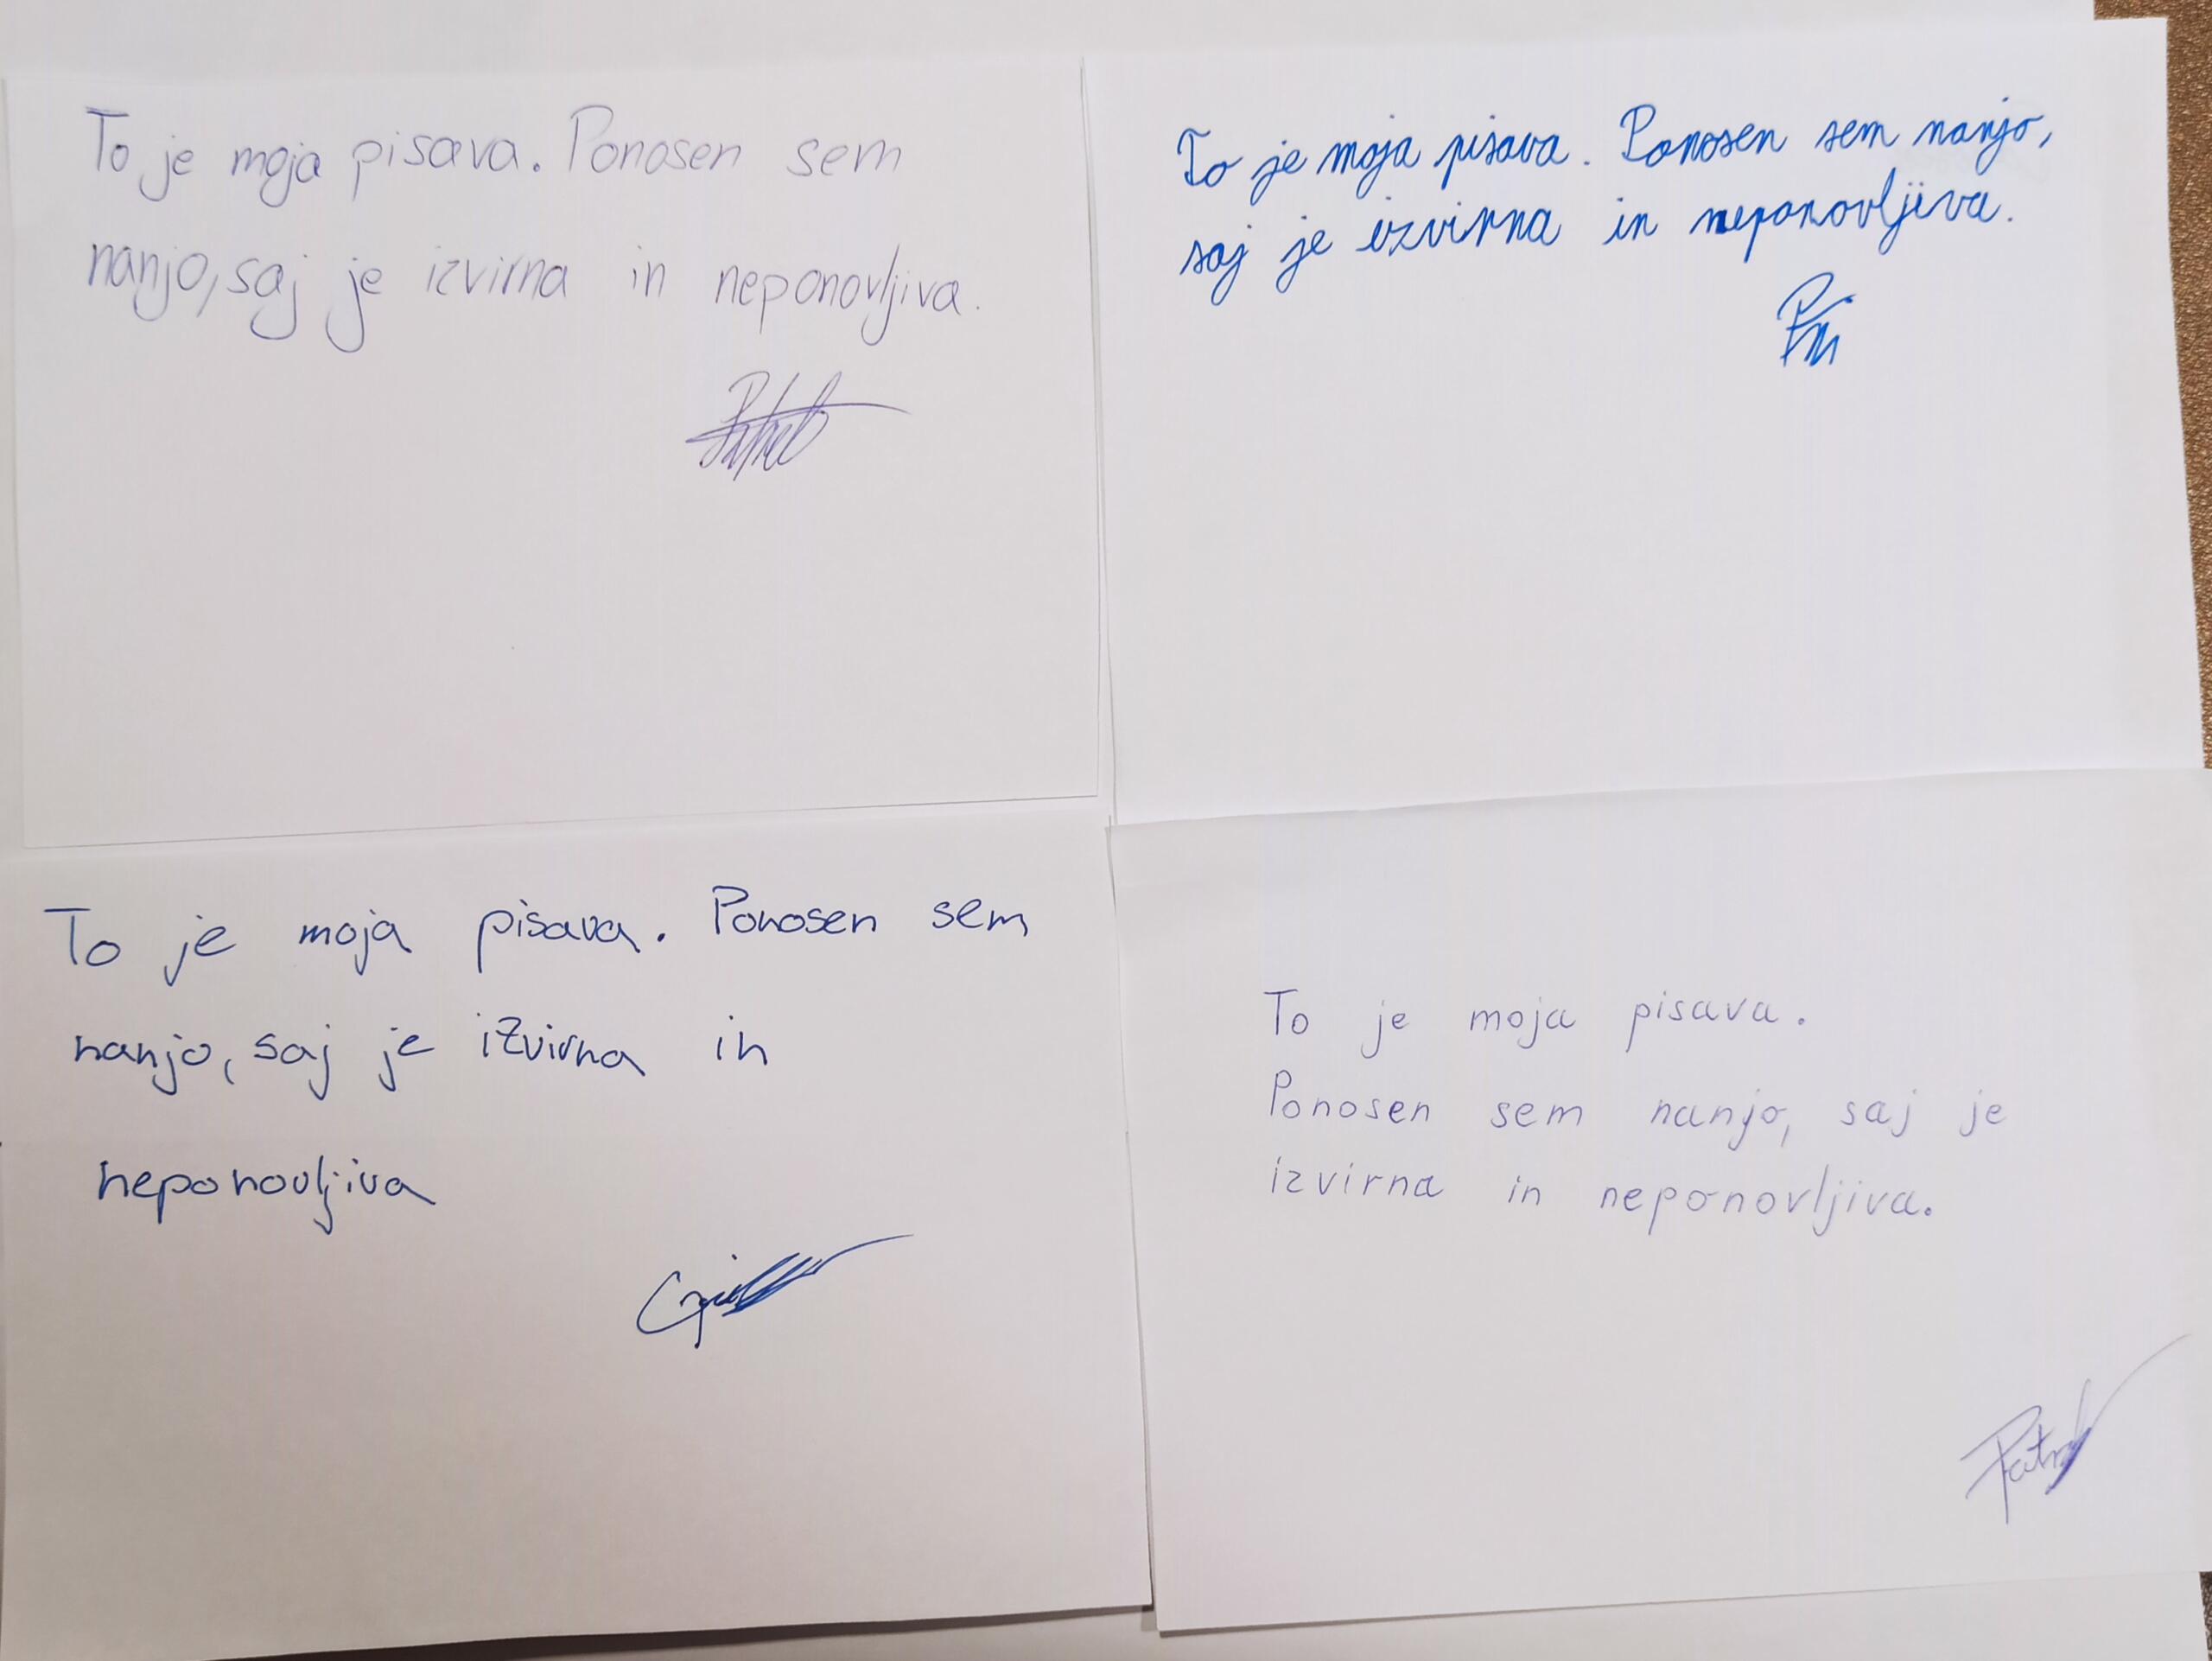 To je moja pisava. Ponosen sem
nanjo, saj je izvirna in neponovljiva.
To je moja pisava. Ponosen sem nanjo,
saj je izvirna in neponovljiva.
To je moja pisava. Ponosen sem
nanjo, saj je izvirna in
neponovljiva
To je moja pisava.
Ponosen sem nanjo, saj je
izvirna in neponovljiva.